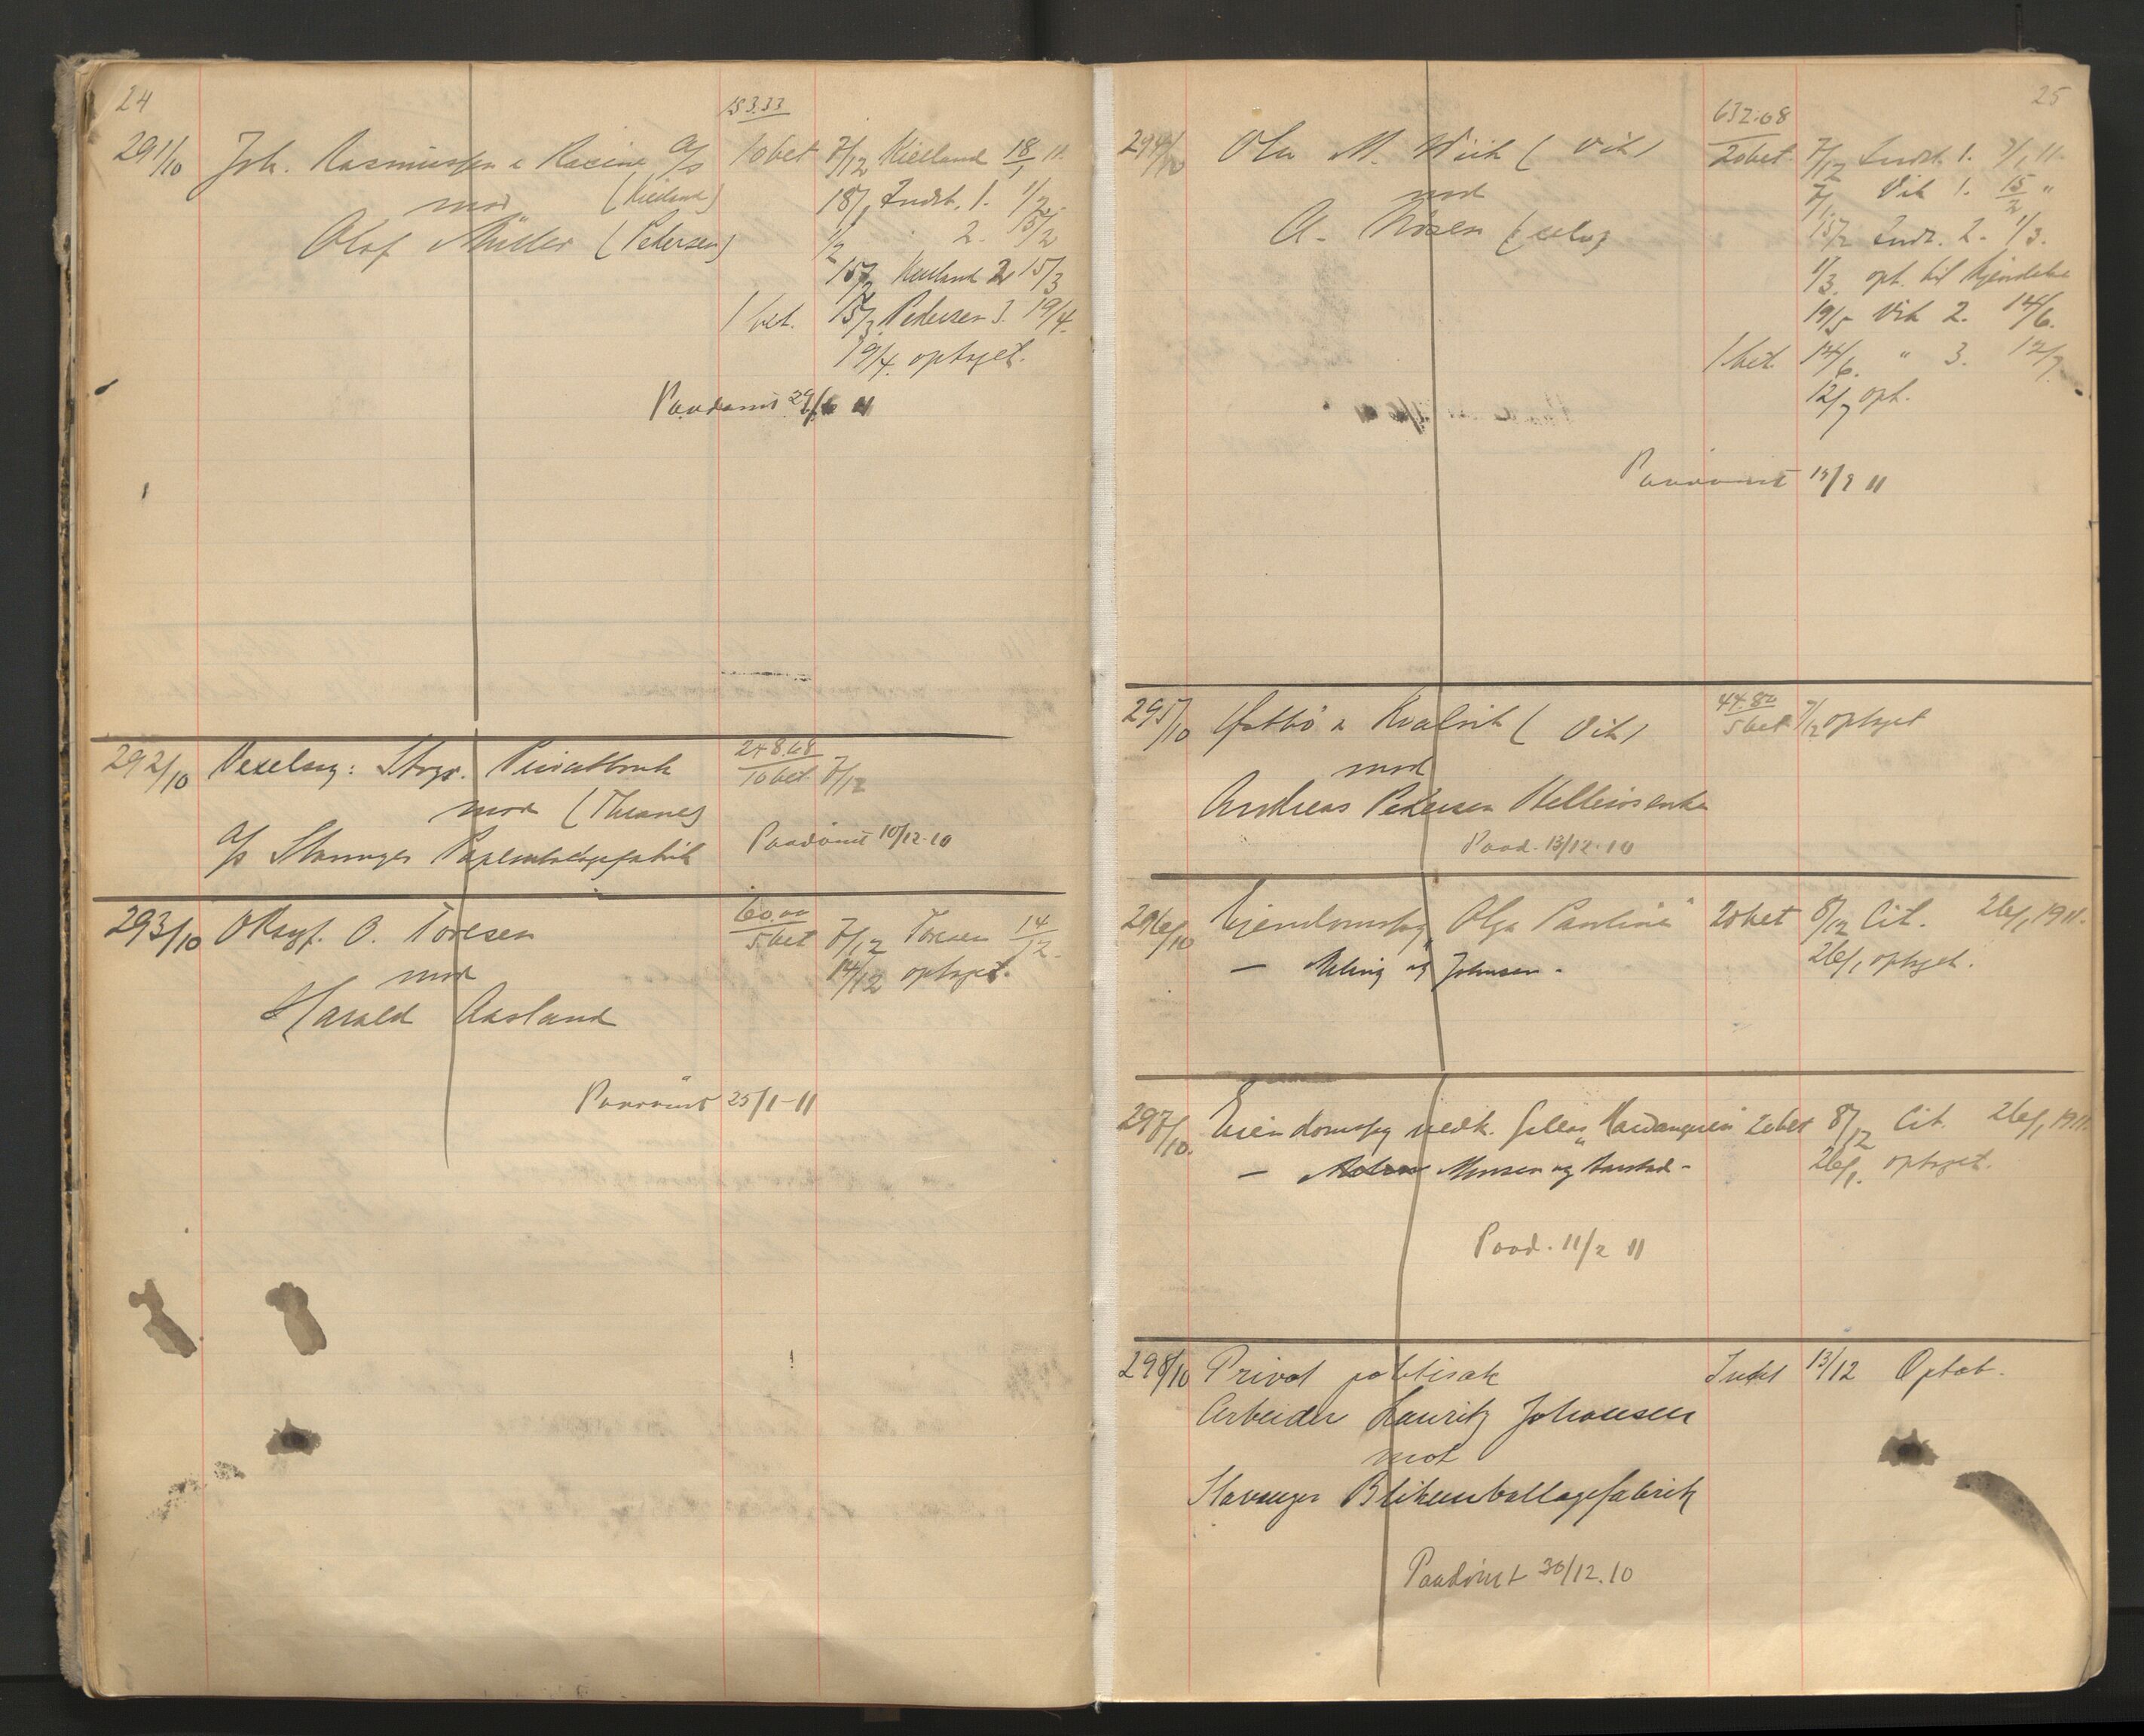 24
153.33
291/10 Joh. Rasmussen & Racine A/S 10 bet 7/12 Kielland 18/1 11.
mod (Kielland) 18/1 Indst. 1. 1/2.
Olaf Müller (Pedersen) 1/2 " 2. 15/2
15/2 Kielland 2 15/3
1 bet. 15/3 Pedersen 3. 19/4.
19/4. optaget.
Paadömt 29/4 11
292/10 Vexelsag: Stvgr. Privatbank 248.68
10 bet 7/12
mod (Thranes)
A/S Stavanger Papiremballagefabrik Paadömt 10/12.10
293/10 O. Toresen 60.00
5 bet 7/12 Toresen 14/12.
mod 14/12 optaget.
Harald Aasland
Paadömt 25/1-11
25
632.08
294/10 Ola M. Wiik (Vik) 20 bet 7/12 Indst. 1. 7/1 11.
mod 7/1. Vik 1. 15/2 "
A. (selv) 15/2 Indst. 2. 1/3.
1/3. opt. til kjendelse
19/5 Vik 2. 14/6.
1 bet. 14/6. " 3. 12/7
12/7 opt.
Paadömt 13/9 11
295/10 Östbö & Kvalvik (Vik) 44.80
5 bet 7/12 optaget
mod
Andreas Pedersen
Paad. 13/12.10
296/10 Eiendomssag "Olga Pauline" 20 bet 8/12 Cit. 26/1 1911.
— Meling og Johnsen - 26/1 optaget.
297/10. Eiendomssag vedk. "Hardangeren" 20 bet 8/12 Cit. 26/1 1911.
— Monsen og - 26/1. optaget.
Paad. 11/2 11
298/10 Privat politisak Intet 13/12 Optat.
Arbeider Lauritz Johansen
mot
Stavanger Blikemballagefabrik
Paadömt 30/12.10